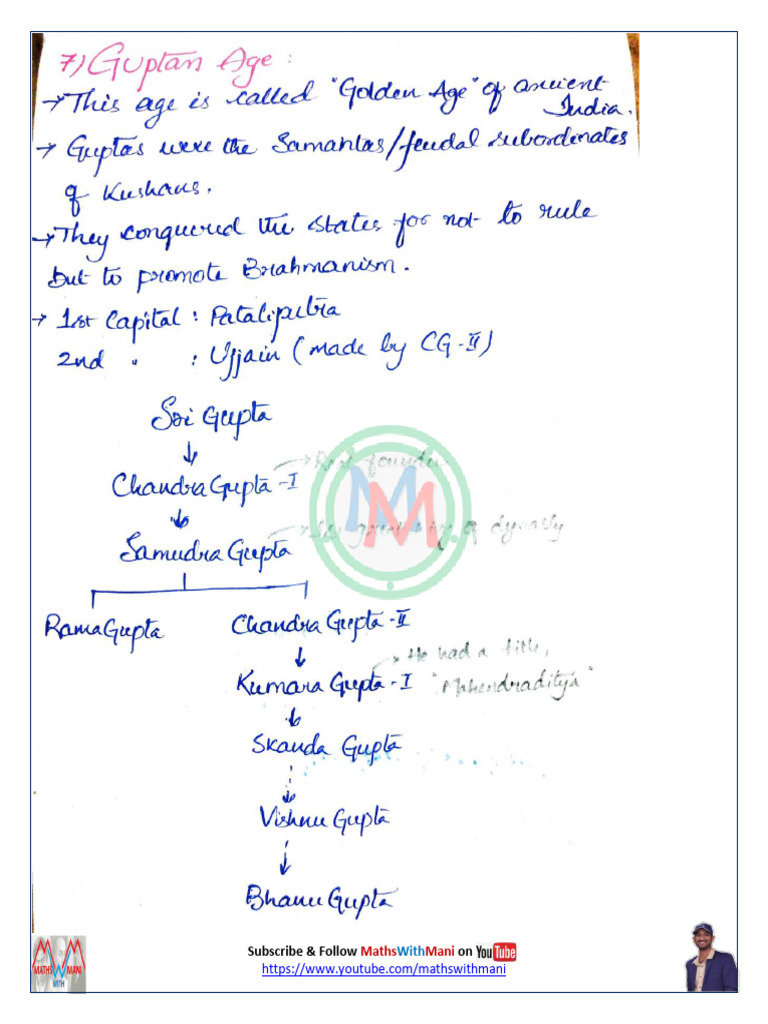 7) Guptan Age :
→ This age is called "Golden Age" of ancient
India.
→ Guptas were the Samantas/feudal subordinates
of Kushans.
→ They conquered the states for not to rule
but to promote Brahmanism.
→ 1st Capital : Pataliputra
2nd " : Ujjain (made by CG-II)
Sri Gupta
↓
Chandra Gupta-I → Real founder
↓
Samudra Gupta → of dynasty
Rama Gupta Chandra Gupta-II
↓
Kumara Gupta-I → He had a title,
"Mahendraditya"
↓
Skanda Gupta
↓
Vishnu Gupta
↓
Bhanu Gupta
MM
MATHS MANI
WITH
Subscribe & Follow MathsWithMani on YouTube
https://www.youtube.com/mathswithmani